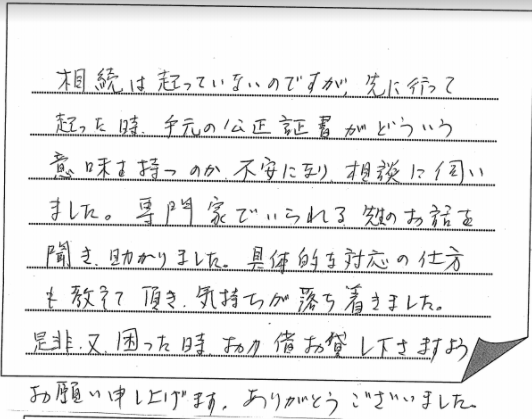 相続は起っていないのですが、先に行って
起った時、手元の公正証書がどういう
意味を持つのか、不安になり、相談に伺い
ました。専門家でいられる 先生のお話を
聞き、助かりました。具体的な対応の仕方
も教えて頂き、気持ちが落ち着きました。
是非、又、困った時、お力 借お貸し下さますよう
お願い申し上げます。ありがとうございました。